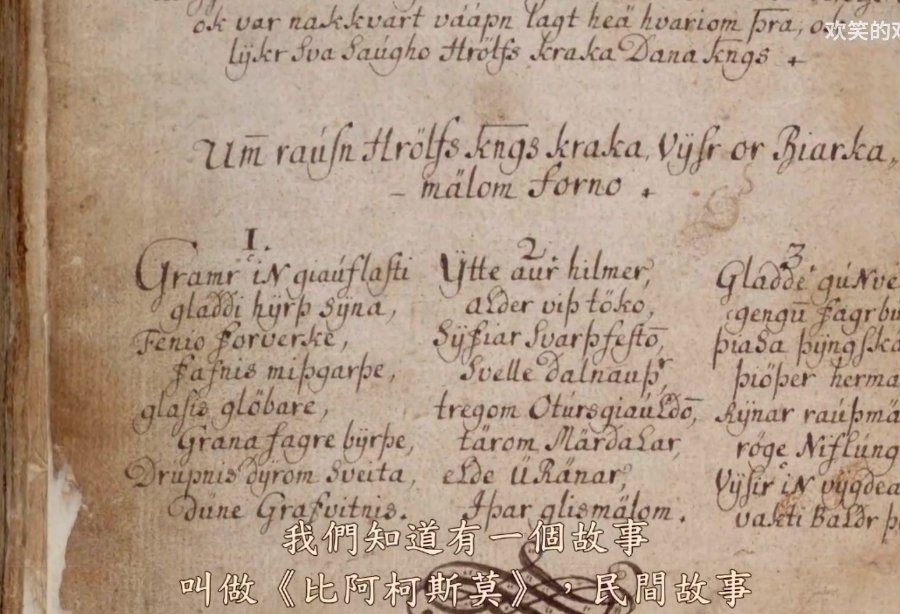 ok var nakkvart váápn lagt heä hvariom þra, o
欢笑的
lÿkr Sva Saúgho Hrölfs kraka Dana kn̅gs
Um̅ raúsn Hrölfs kn̅gs kraka, Vÿsr or Biarka,
mälom forno
1.
Gramr iN giaúflasti
gladdi hÿrþ sÿna,
Fenio forverke,
fafnis miþgarþe,
glasis glöbare,
Grana fagre bÿrþe,
Drúpnis dÿrom sveita,
dúne Grafvitnis.
2
Ÿtte aur hilmer,
aLder viþ töko,
Sÿfiar svarþfesto̅,
Svelle dalnauþr,
tregom Otúrsgiaúldo̅,
tärom MärdaLar,
eLde ÜRänar,
Iþar glismälom.
3
Gladde gúNve
gengu̅ fagrbu
þiasa þÿngska
þiöþer herma
Rÿnar raúþmä
röge Niflúng
Vÿsir iN vÿgdea
vakti BaLdr þ
我們知道有一個故事
叫做《比阿柯斯莫》，民間故事